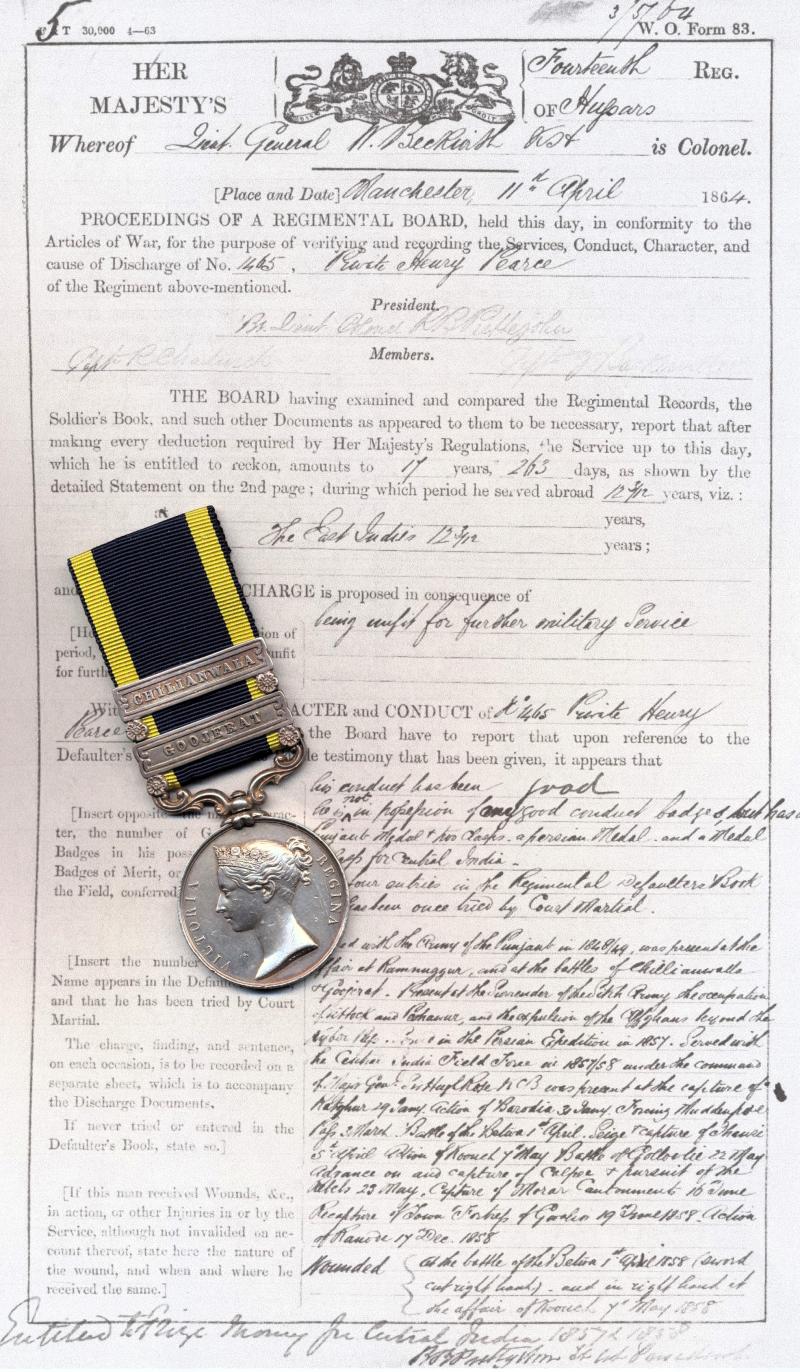 5
30,000 4—63
3/5/64
W. O. Form 83.
HER
MAJESTY'S
Fourteenth REG.
OF Hussars
Whereof Lieut. General W. Beckwith is Colonel.
[Place and Date] Manchester, 11th April 1864.
PROCEEDINGS OF A REGIMENTAL BOARD, held this day, in conformity to the
Articles of War, for the purpose of verifying and recording the Services, Conduct, Character, and
cause of Discharge of No. 1465, Private Henry Pearce
of the Regiment above-mentioned.
President.
Bt. Lieut. Colonel
Members.
Capt.
THE BOARD having examined and compared the Regimental Records, the
Soldier's Book, and such other Documents as appeared to them to be necessary, report that after
making every deduction required by Her Majesty's Regulations, the Service up to this day,
which he is entitled to reckon, amounts to 17 years, 263 days, as shown by the
detailed Statement on the 2nd page; during which period he served abroad 12 3/12 years, viz.:
at
years,
The East Indies 12 3/12 years;
and
CHARGE is proposed in consequence of
being unfit for further military Service
[He
ion of
period,
unfit
for furth
CHILIANWALA
GOOJERAT
VICTORIA REGINA
With
ACTER and CONDUCT of No 1465 Private Henry
Pearce the Board have to report that upon reference to the
Defaulter's
le testimony that has been given, it appears that
his conduct has been good
[Insert opposite the
ter, the number of G
Badges in his pos
Badges of Merit, or
the Field, conferred
he is not in possession of any good conduct badges, but has a
Punjaub Medal & two Clasps. a persian Medal. and a Medal
Clasp for Central India.
four entries in the Regimental Defaulters Book
has been once tried by Court Martial.
[Insert the number
Name appears in the Defau
and that he has been tried by Court
Martial.
The charge, finding, and sentence,
on each occasion, is to be recorded on a
separate sheet, which is to accompany
the Discharge Documents.
If never tried or entered in the
Defaulter's Book, state so.]
ed with the Army of the Punjaub in 1848/49, was present at the
affair at Ramnuggur, and at the battles of Chillianwalla
& Goojerat. Present at the Surrender of the Sikh Army the occupation
of Attock and Peshawur, and the expulsion of the Affghans beyond the
Kyber Pass. in the Persian Expedition in 1857. Served with
the Central India Field Force in 1857/58 under the command
of Major Genl. Sir Hugh Rose KCB was present at the capture of
Ratghur 29 Jany. Action of Barodia 31 Jany. Forcing Muddenpore
Pass 3 March. Battle of the Betwa 1st April. Seige & capture of Jhansi
5 April Action of Koonch 7th May Battle of Gollowlie 22 May
Advance on and capture of Calpee & pursuit of the
Rebels 23 May. Capture of Morar Cantonments 16 June
Recapture of Town & Fortress of Gwalior 19 June 1858. Action
of Ranode 17 Dec. 1858
[If this man received Wounds, &c.,
in action, or other Injuries in or by the
Service, although not invalided on ac-
count thereof, state here the nature of
the wound, and when and where he
received the same.]
Wounded
at the battle of the Betwa 1st April 1858 (sword
cut right hand) - and in right hand at
the affair of Koonch 7th May 1858
Entitled to Prize Money for Central India 1857 & 1858